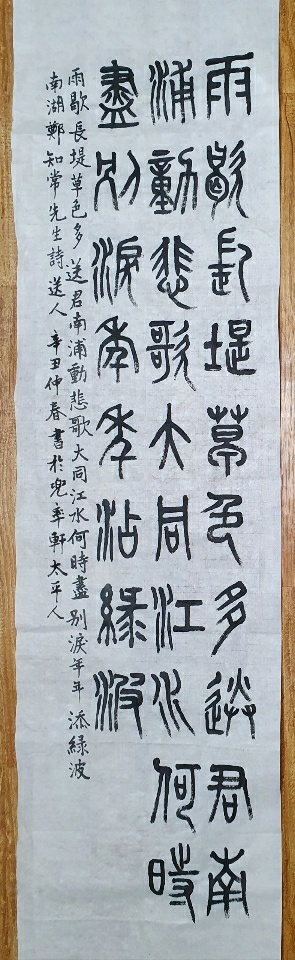 雨歇長堤草色多送君南
浦動悲歌大同江水何時
盡別淚年年沾綠波
雨歇長堤草色多送君南浦動悲歌大同江水何時盡別淚年年添綠波
南湖鄭知常先生詩送人 辛丑仲春書於兜率軒太平人